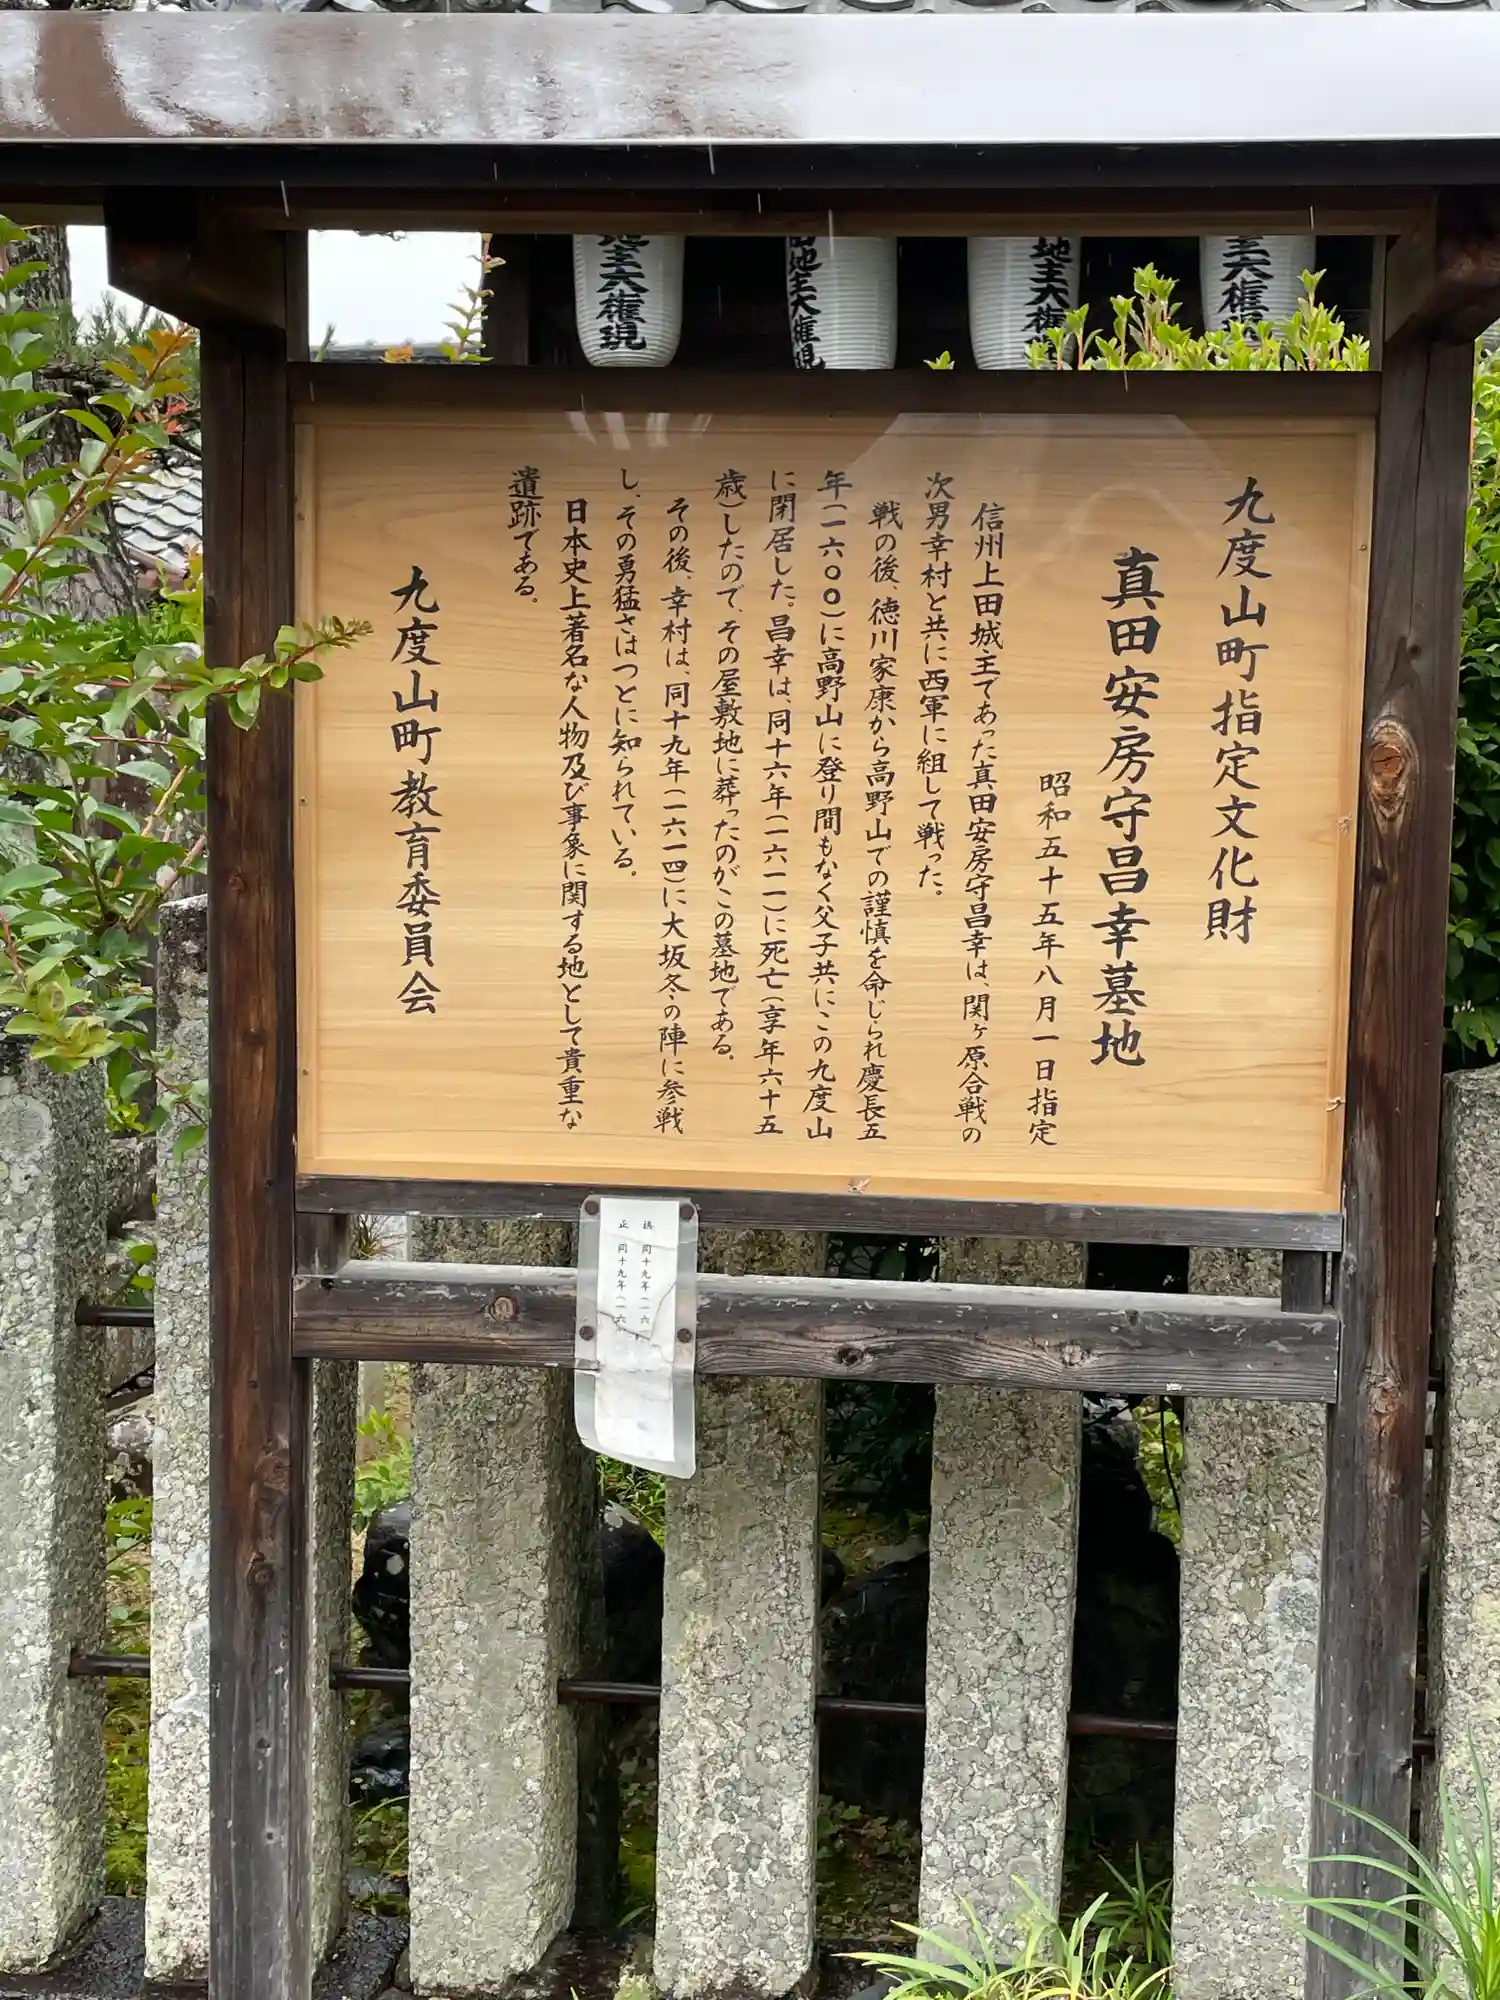 九度山町指定文化財
真田安房守昌幸墓地
昭和五十五年八月一日指定
信州上田城主であった真田安房守昌幸は、関ヶ原合戦の
次男幸村と共に西軍に組して戦った。
戦の後、徳川家康から高野山での謹慎を命じられ慶長五
年(一六〇〇)に高野山に登り間もなく父子共にこの九度山
に閉居した。昌幸は、同十六年(一六一一)に死亡(享年六十五
歳)したので、その屋敷地に葬ったのがこの墓地である。
その後、幸村は、同十九年(一六一四)に大坂冬の陣に参戦
し、その勇猛さはつとに知られている。
日本史上著名な人物及び事象に関する地として貴重な
遺跡である。
九度山町教育委員会
地主大権現
地主大権現
地主大権
主大権現
同十九年(一六
正 同十九年(一六